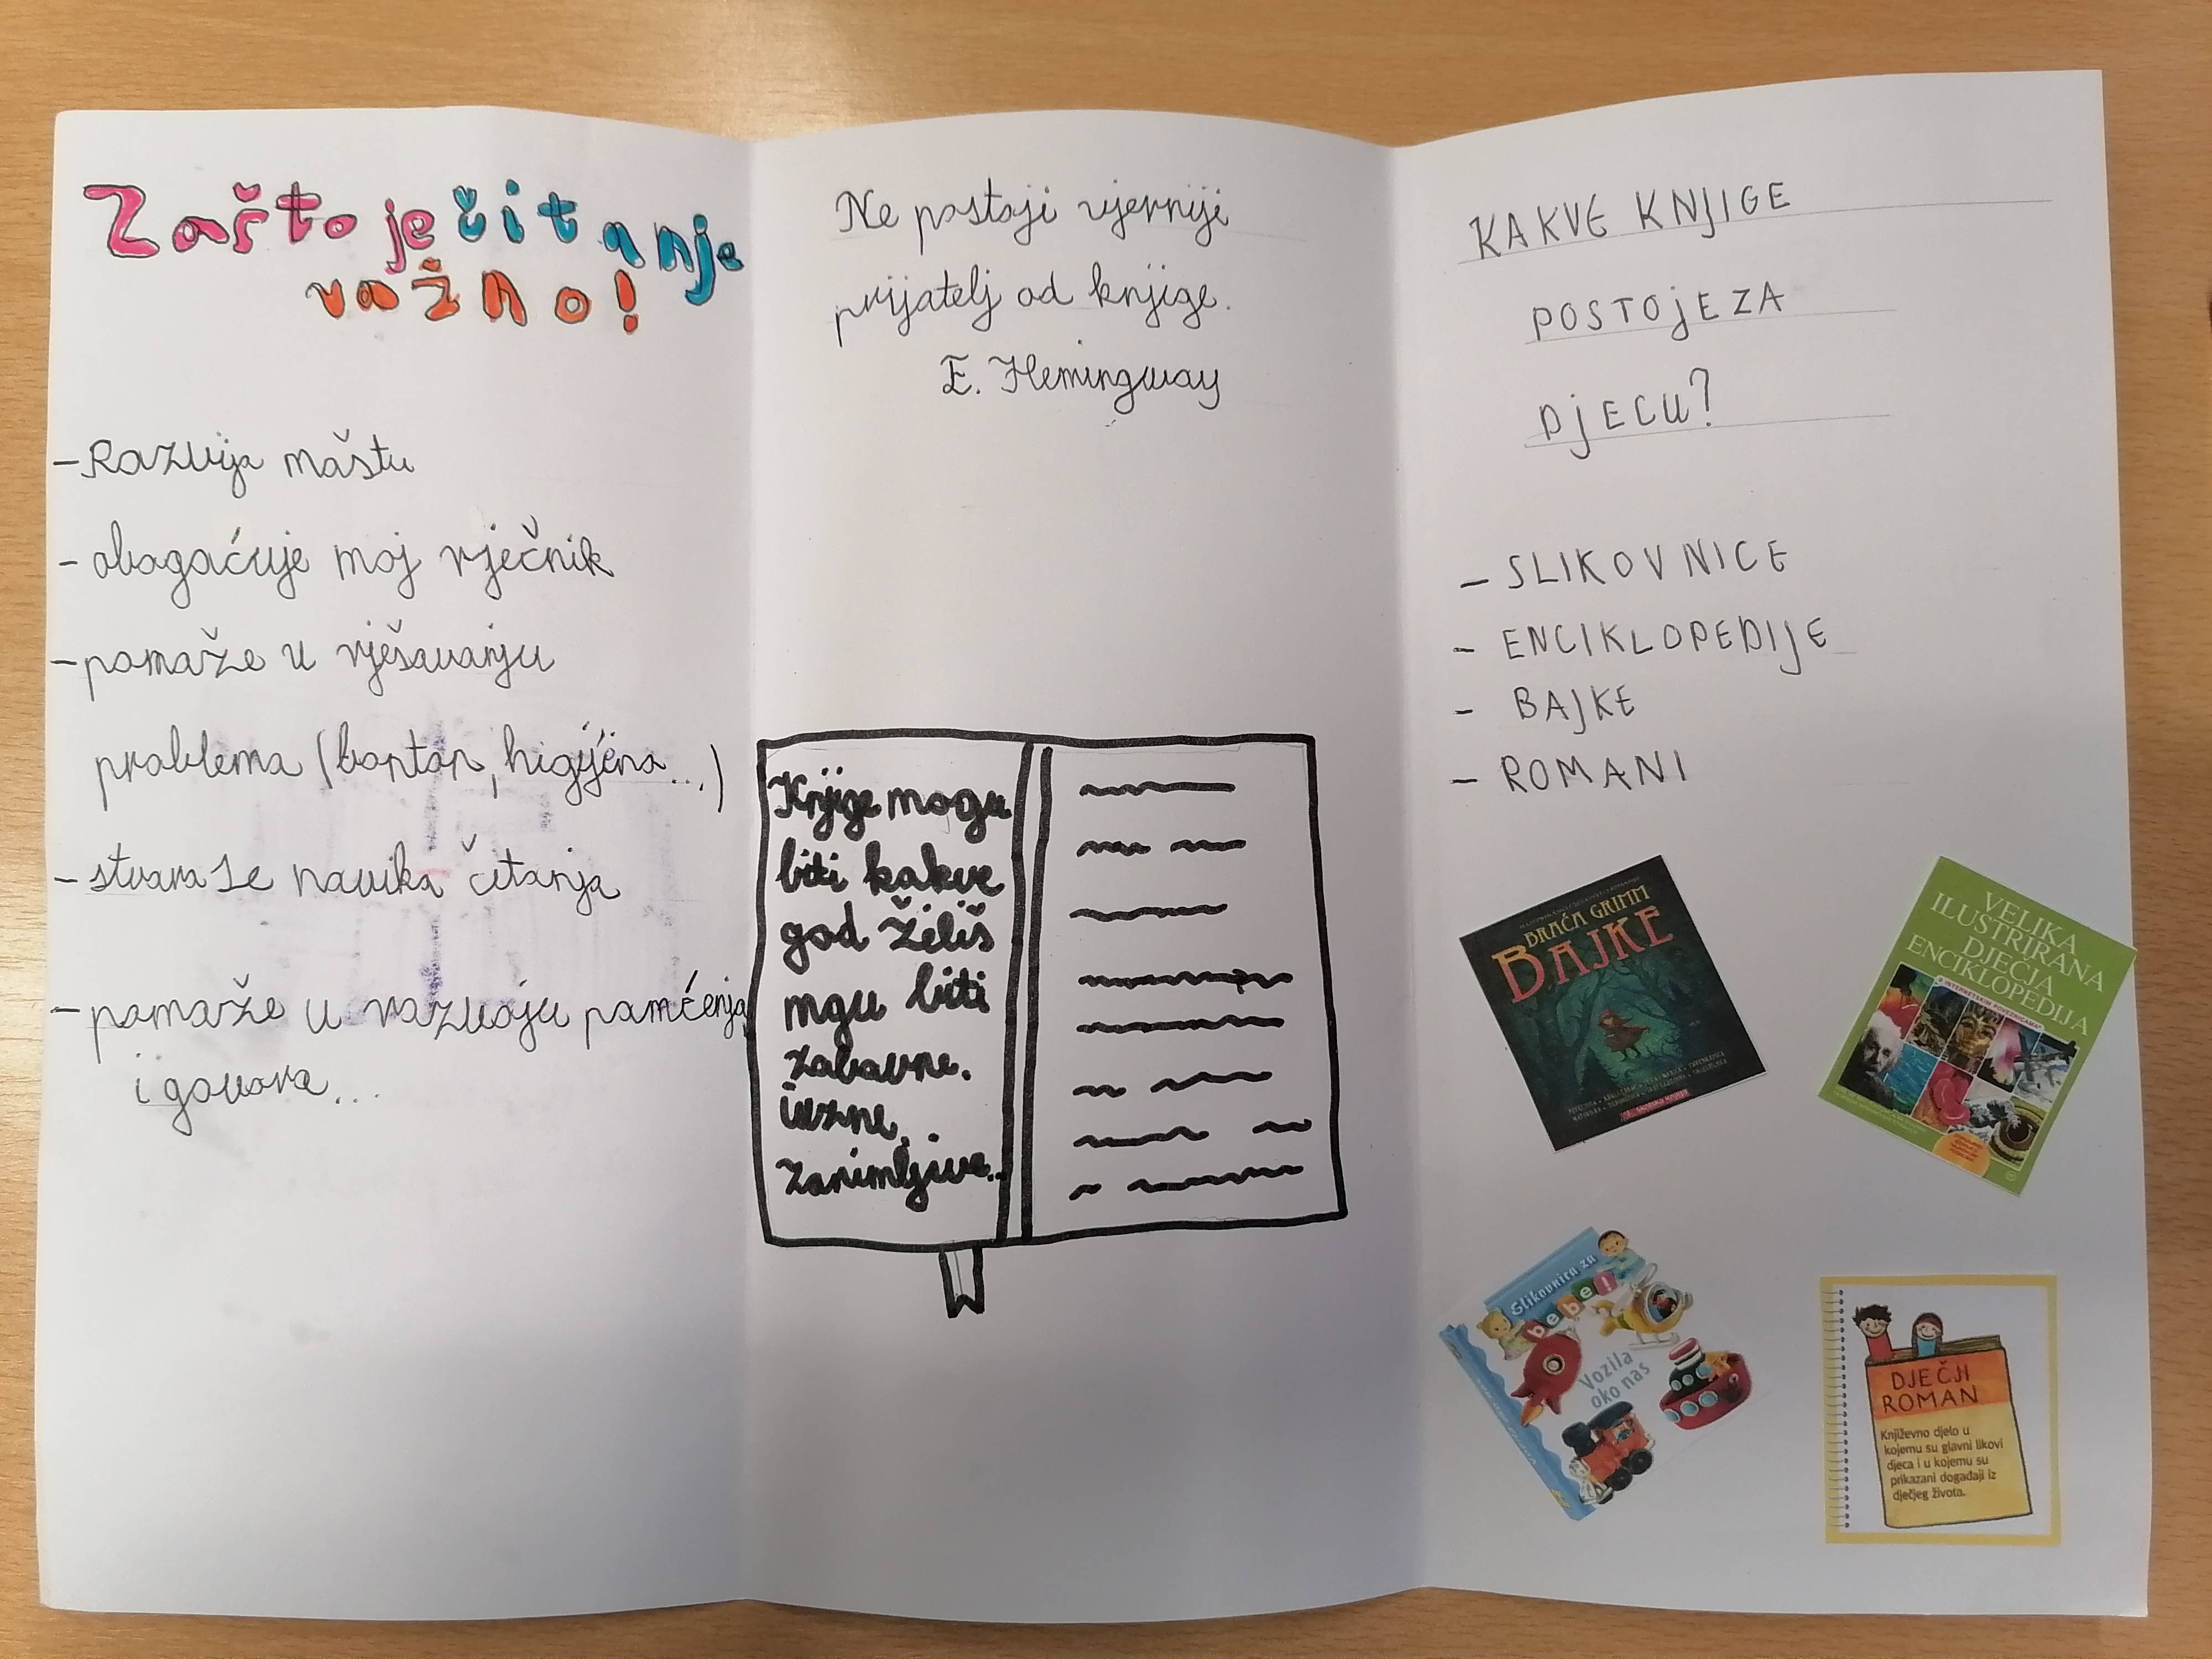 Zašto je čitanje
važno!
- Razvija maštu
- obogaćuje moj rječnik
- pomaže u rješavanju
problema (bonton, higijena...)
- stvara se navika čitanja
- pomaže u razvoju pamćenja
i govora...
Ne postoji vjerniji
prijatelj od knjige.
E. Hemingway
Knjige mogu
biti kakve
god želiš
mgu biti
zabavne.
zanimljive..
KAKVE KNJIGE
POSTOJE ZA
DJECU?
- SLIKOVNICE
- ENCIKLOPEDIJE
- BAJKE
- ROMANI
BRAĆA GRIMM
BAJKE
VELIKA
ILUSTRIRANA
DJEČJA
ENCIKLOPEDIJA
S INTERNETSKIM POVEZNICAMA
Slikovnica za
bebe!
Vozila
oko nas
DJEČJI
ROMAN
Književno djelo u
kojemu su glavni likovi
djeca i u kojemu su
prikazani događaji iz
dječjeg života.